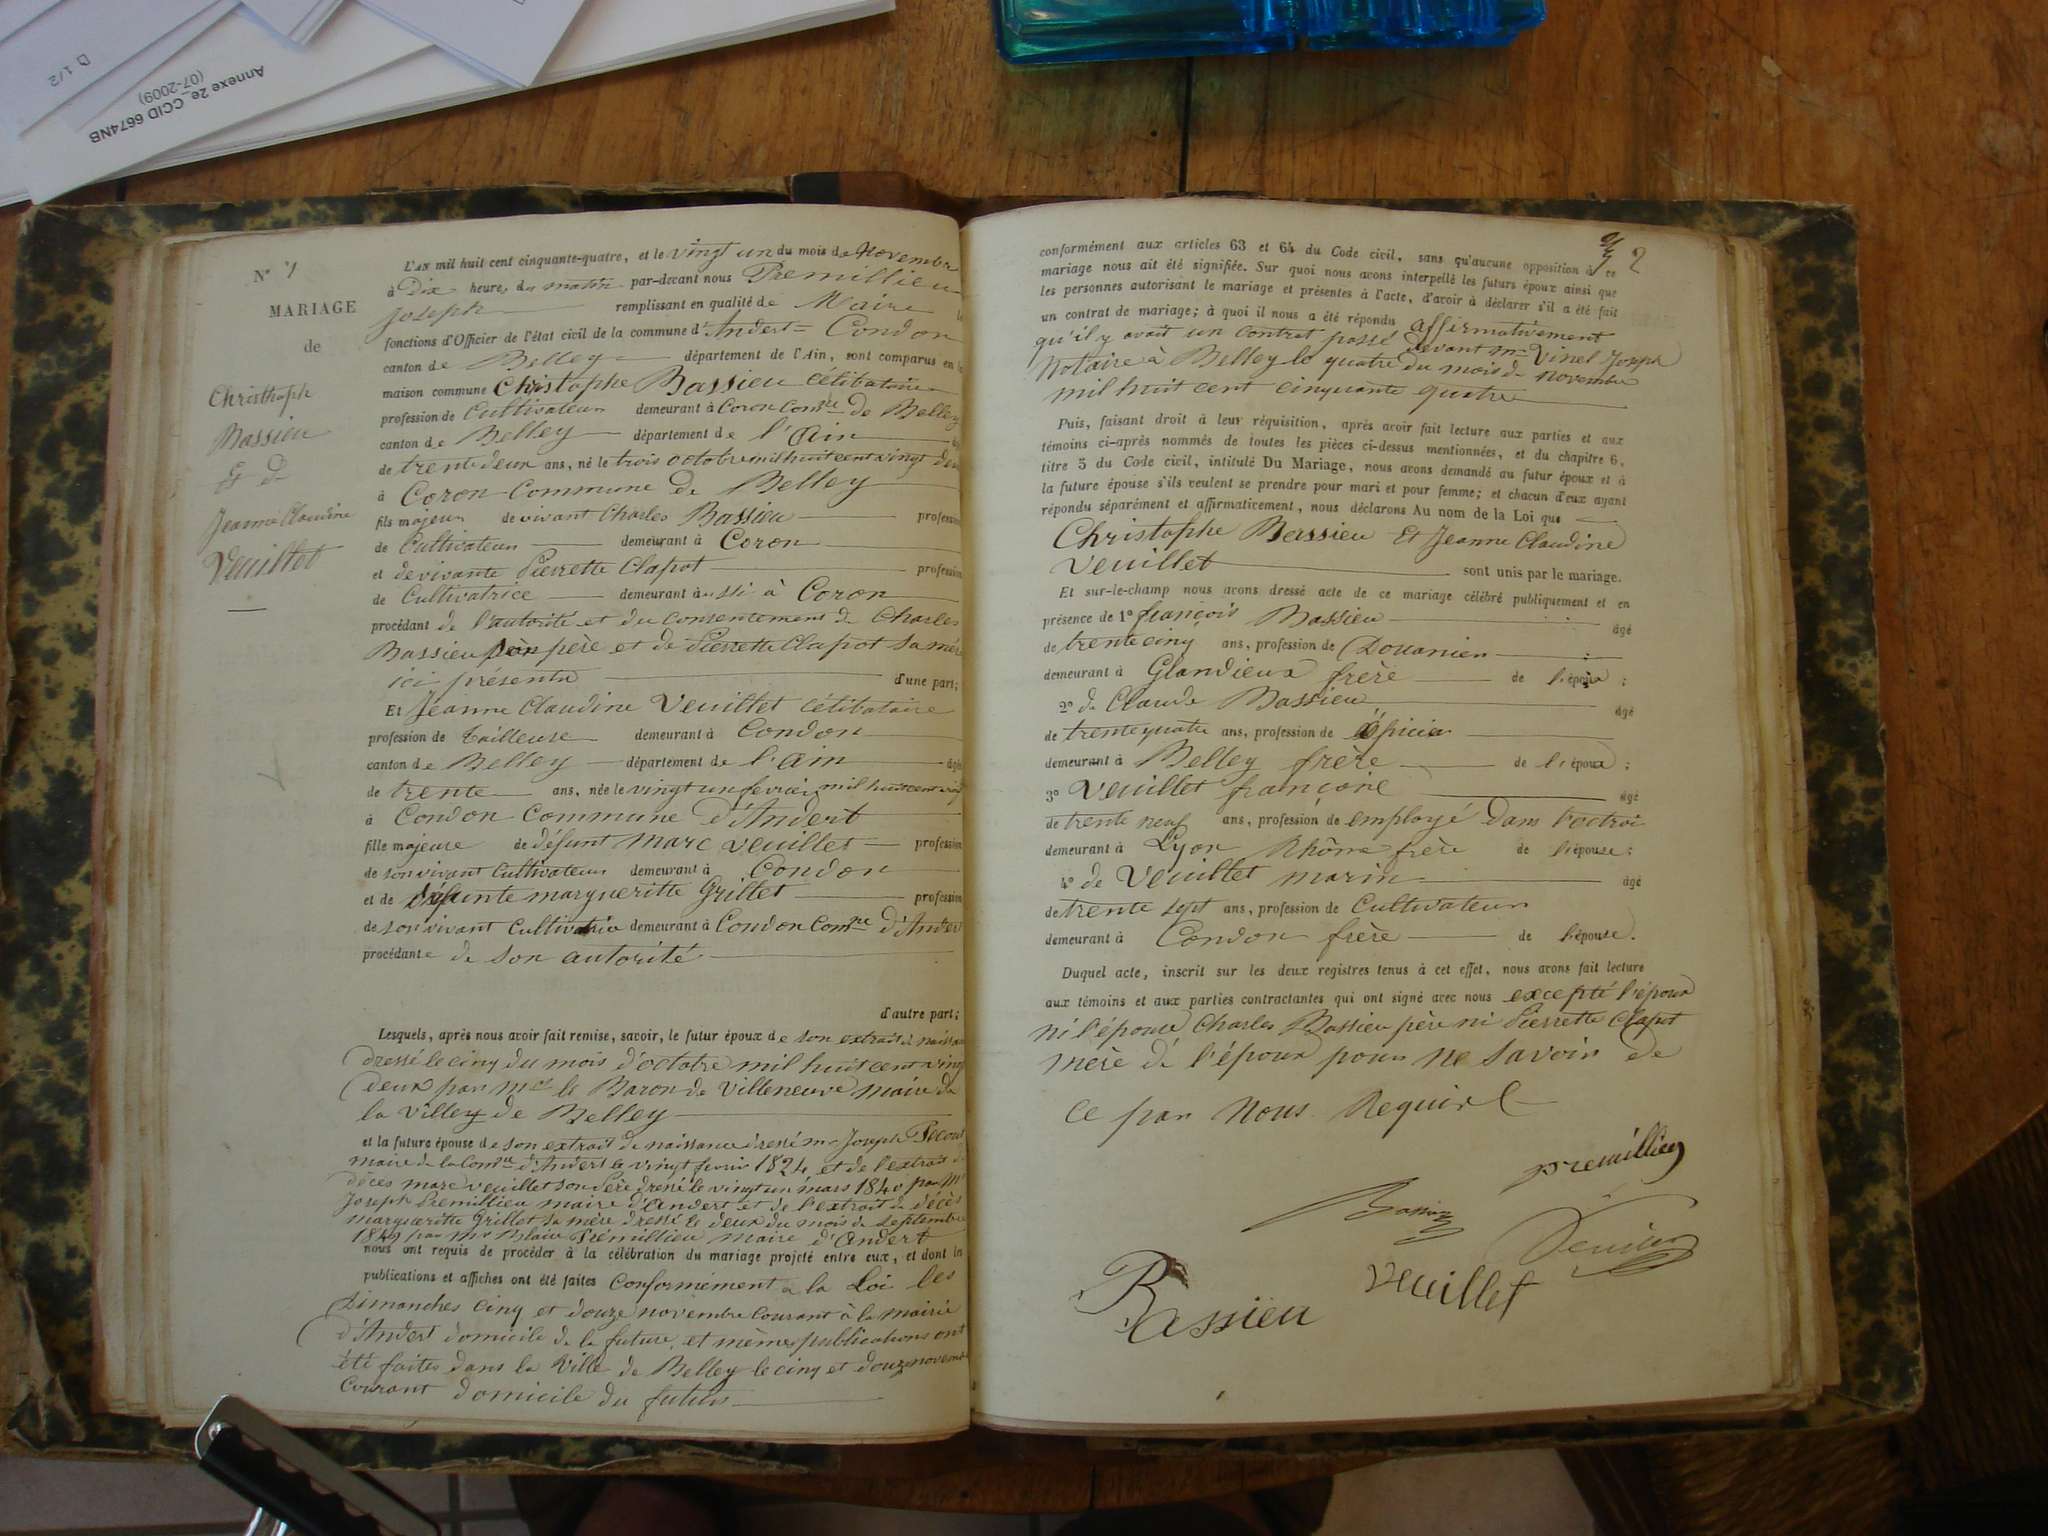 D 1/2
Annexe 2e_CCID 6674NB
(07-2009)
N° 7
MARIAGE
de
Christhoph
Bassieu
Et de
Jeanne Claudine
Veuillet
L'AN mil huit cent cinquante-quatre, et le vingt un du mois de Novembre
à Dix heures du matin par-devant nous Premillieu
Joseph remplissant en qualité de Maire le
fonctions d'Officier de l'état civil de la commune d'Andert = Condon
canton de Belley département de l'Ain, sont comparus en la
maison commune Christophe Bassieu Célibataire
profession de Cultivateur demeurant à Coron Comne de Belley
canton de Belley département de l'Ain âgé
de trente deux ans, né le trois octobre mil huit cent vingt deux
à Coron Commune de Belley
fils majeur de vivant Charles Bassieu profession
de Cultivateur demeurant à Coron
et de vivante Pierrette Clapot profession
de Cultivatrice demeurant aussi à Coron
procédant de l'autorité et du consentement de Charles
Bassieu son père et de Pierrette Clapot sa mère
ici présents d'une part;
Et Jeanne Claudine Veuillet célibataire
profession de tailleuse demeurant à Condon
canton de Belley département de l'Ain âgée
de trente ans, née le vingt un fevrier mil huit cent vingt
à Condon Commune d'Andert
fille majeure de défunt Marc Veuillet profession
de son vivant Cultivateur demeurant à Condon
et de défunte margueritte Grillet profession
de son vivant Cultivatrice demeurant à Condon Comne d'Andert
procédante de son autorité
d'autre part;
Lesquels, après nous avoir fait remise, savoir, le futur époux de son extrait de naissance
dressé le cinq du mois d'octobre mil huit cent vingt
deux par Mr le Baron de Villeneuve maire de
la Villey de Belley
et la future épouse de son extrait de naissance dressé mr Joseph
maire de la Comne d'Andert le vingt fevrier 1824 et de l'extrait de
décès marc veuillet son Père dressé le vingt un mars 1840 par Mr
Joseph Premillieu maire d'Andert et de l'extrait de décès
margueritte Grillet sa mère dressé le deux du mois de septembre
1849 par Mr Premillieu maire d'Andert
nous ont requis de procéder à la célébration du mariage projeté entre eux, et dont les
publications et affiches ont été faites Conformément à la Loi les
Dimanches cinq et douze novembre courant à la mairie
d'Andert domicile de la future, et mêmes publications ont
été faites dans la Ville de Belley le cinq et douze novembre
Courant domicile du futur
2
conformément aux articles 63 et 64 du Code civil, sans qu'aucune opposition à ce
mariage nous ait été signifiée. Sur quoi nous avons interpellé les futurs époux ainsi que
les personnes autorisant le mariage et présentes à l'acte, d'avoir à déclarer s'il a été fait
un contrat de mariage; à quoi il nous a été répondu affirmativement
qu'il y avait un contrat passé devant mr Vinel Joseph
Notaire à Belley le quatre du mois de novembre
mil huit cent cinquante quatre
Puis, faisant droit à leur réquisition, après avoir fait lecture aux parties et aux
témoins ci-après nommés de toutes les pièces ci-dessus mentionnées, et du chapitre 6,
titre 5 du Code civil, intitulé Du Mariage, nous avons demandé au futur époux et à
la future épouse s'ils veulent se prendre pour mari et pour femme; et chacun d'eux ayant
répondu séparément et affirmativement, nous déclarons Au nom de la Loi que
Christophe Bassieu Et Jeanne Claudine
Veuillet sont unis par le mariage.
Et sur-le-champ nous avons dressé acte de ce mariage célébré publiquement et en
présence de 1° françois Bassieu âgé
de trente cinq ans, profession de Douanier
demeurant à Glandieux frère de l'époux;
2° de Claude Bassieu âgé
de trente quatre ans, profession de épicier
demeurant à Belley frère de l'époux;
3° Veuillet françois âgé
de trente neuf ans, profession de employé dans l'octroi
demeurant à Lyon Rhône frère de l'épouse;
4° de Veuillet marin âgé
de trente sept ans, profession de Cultivateur
demeurant à Condon frère de l'épouse.
Duquel acte, inscrit sur les deux registres tenus à cet effet, nous avons fait lecture
aux témoins et aux parties contractantes qui ont signé avec nous excepté l'époux
ni l'épouse Charles Bassieu père ni Pierrette Clapot
mère de l'époux pour ne savoir de
ce par Nous Requis
premillieu
Bassieu
Veuillet
Bassieu